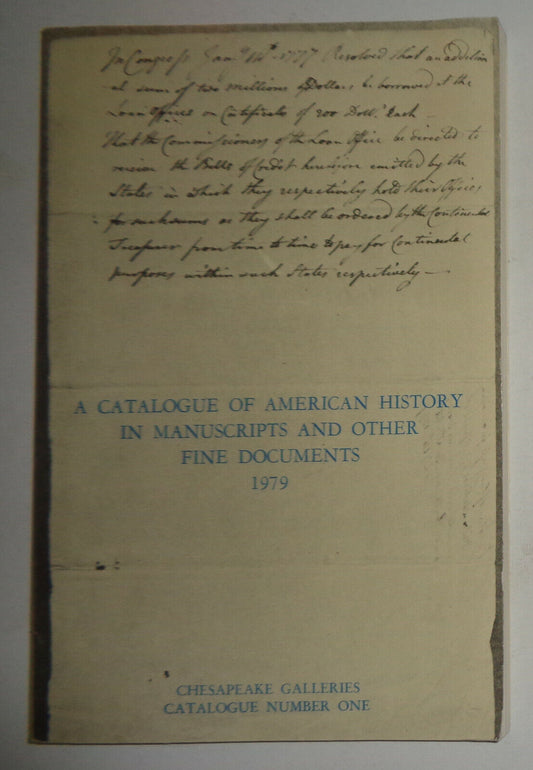 In Congress Jany. 14th. 1777 Resolved that an addition
al sum of two millions of Dollars be borrowed at the
Loan Offices on Certificates of 200 Doll.s Each
That the Commissioners of the Loan Office be directed to
receive the Bills of Credit heretofore emitted by the
States in which they respectively hold their Offices
for such sums as they shall be ordered by the Continental
Treasurer from time to time to pay for Continental
purposes within such States respectively—
A CATALOGUE OF AMERICAN HISTORY
IN MANUSCRIPTS AND OTHER
FINE DOCUMENTS
1979
CHESAPEAKE GALLERIES
CATALOGUE NUMBER ONE